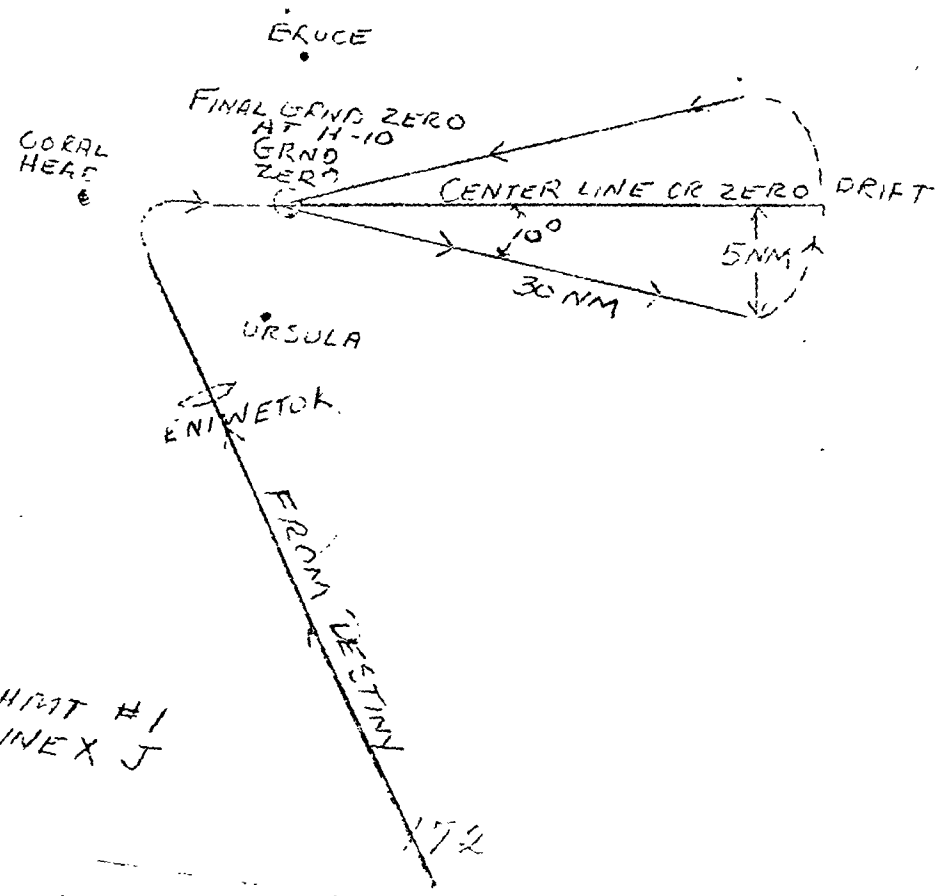 BRUCE
FINAL GRND ZERO
AT H-10
GRND
ZERO
CORAL
HEAD
CENTER LINE OR ZERO DRIFT
10°
5 NM
30 NM
URSULA
ENIWETOK
FROM DESTINY
#1
J
172